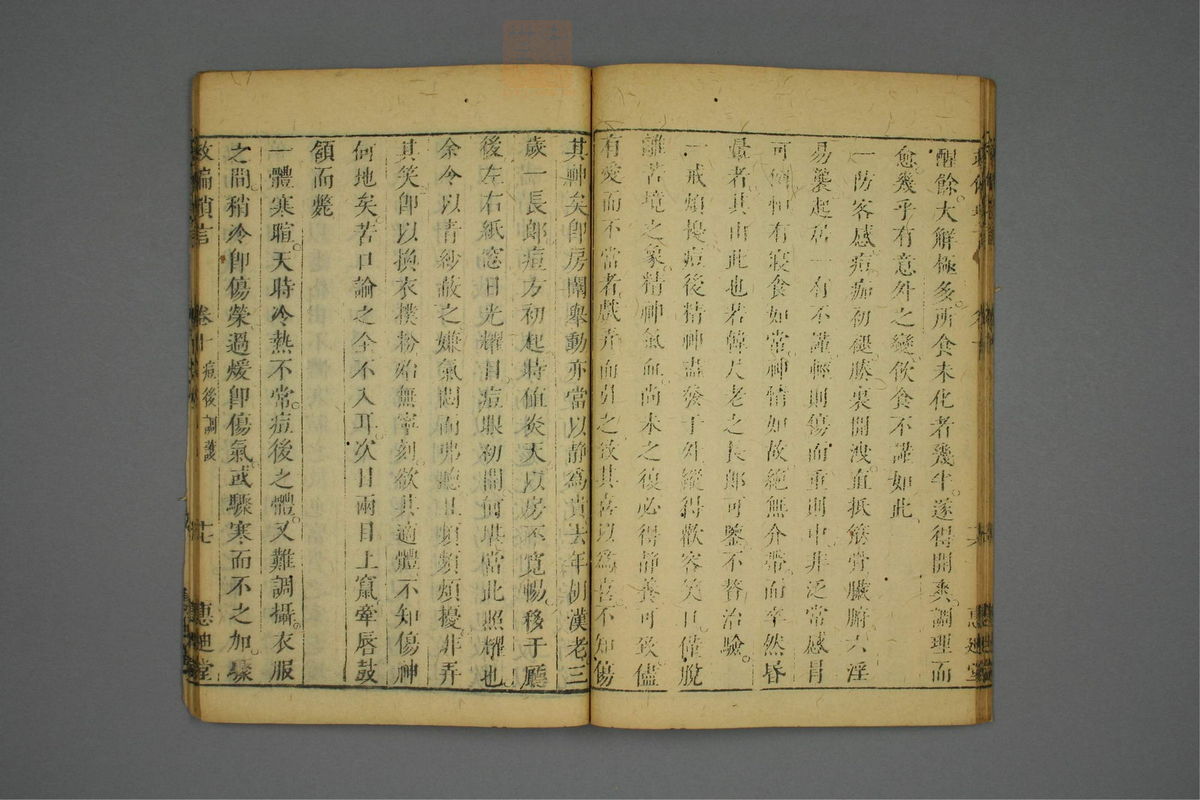 醒餘大解極多所食未化者幾半遂得開爽調理而
愈幾乎有意外之變飲食不謹如此
一防客感痘痂初褪腠裏開洩直抵筋骨臟腑六淫
易襲起居一有不謹輕則傷面重則中非泛常感冒
可倫和有寢食如常神情如故絕無介帶而卒然昏
暈者其由此也若韓尺老之長郎可鑒不替治驗
一戒煩惱痘後精神盡發于外縱得歡容笑口僅脫
離苦境之象精神氣血尚未之復必得靜養可致儘
有愛而不當者戲弄而引之欲其喜以爲喜不知傷
其神矣卽房闈舉動亦當以靜爲貴去年胡漢老三
歲一長郎痘方初起時值炎天以房不寬暢移于廳
後左右紙窓日光耀目痘眼初開何堪當此照耀也
余令以青紗蔽之嫌氣悶而弗聽且頻頻煩擾非弄
其笑卽以換衣撲粉始無寧刻欲其適體不知傷神
何地矣苦口諭之全不入耳次日兩目上竄牽唇鼓
頷而斃
一體寒暄天時冷熱不常痘後之體又難調攝衣服
之間稍冷卽傷榮過煖卽傷氣或驟寒而不之加驟
救偏瑣言 卷十 痘後調護 十七 惠迪堂